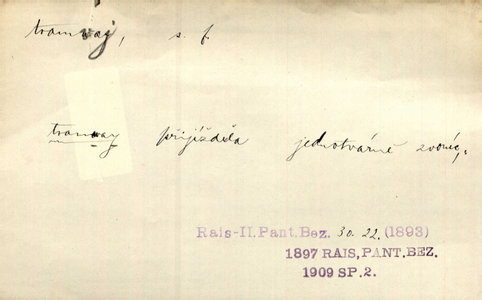 tramvaj, s. f.
tramway přijížděla jednotvárně zvoníc,
Rais-II. Pant. Bez. 30. 22. (1893)
1897 RAIS, PANT. BEZ.
1909 SP. 2.